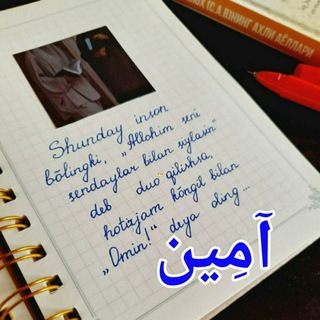 ЮХ (С.А.В)НИНГ АҲЛИ АЁЛЛАРИ
Shunday inson
bõlingki, „Allohim seni
sendaylar bilan siylasin"
deb duo qilishsa,
hotirjam kõngil bilan
„Omin!" deya oling...
آمِين